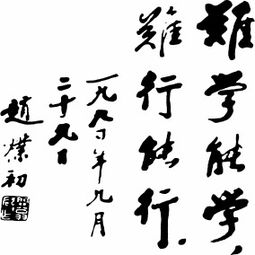 難学能学，
難行能行．
一九九〇年九月
二十九日
趙樸初